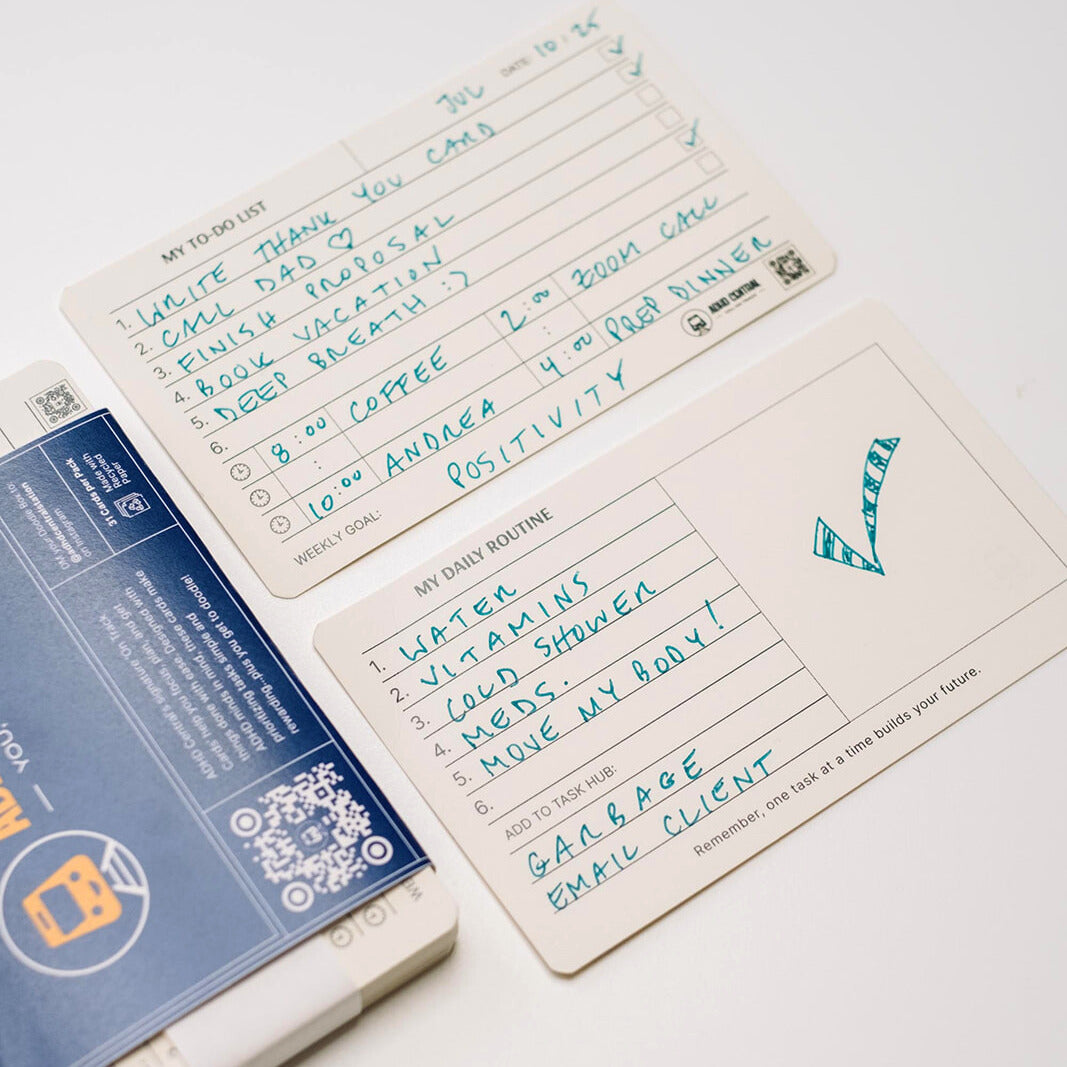 MY TO-DO LIST
JUL
DATE: 10 : 25
1. WRITE THANK YOU CARD
2. CALL DAD ♡
3. FINISH PROPOSAL
4. BOOK VACATION
5. DEEP BREATH :)
6.
8:00 COFFEE
2:00 ZOOM CALL
:
:
10:00 ANDREA
4:00 PREP DINNER
WEEKLY GOAL: POSITIVITY
ADHD CENTRAL
MY DAILY ROUTINE
1. WATER
2. VITAMINS
3. COLD SHOWER
4. MEDS.
5. MOVE MY BODY!
6.
ADD TO TASK HUB:
GARBAGE
EMAIL CLIENT
Remember, one task at a time builds your future.
31 Cards per Pack
Made with
Recycled
Paper
DM your Doodle Box to:
@adhdcentralstation
on Instagram
ADHD Central's signature 'On Track
Cards' help you focus, plan, and get
things done with ease. Designed with
ADHD minds in mind, these cards make
prioritizing tasks simple and
rewarding...plus you get to doodle!
YOU,